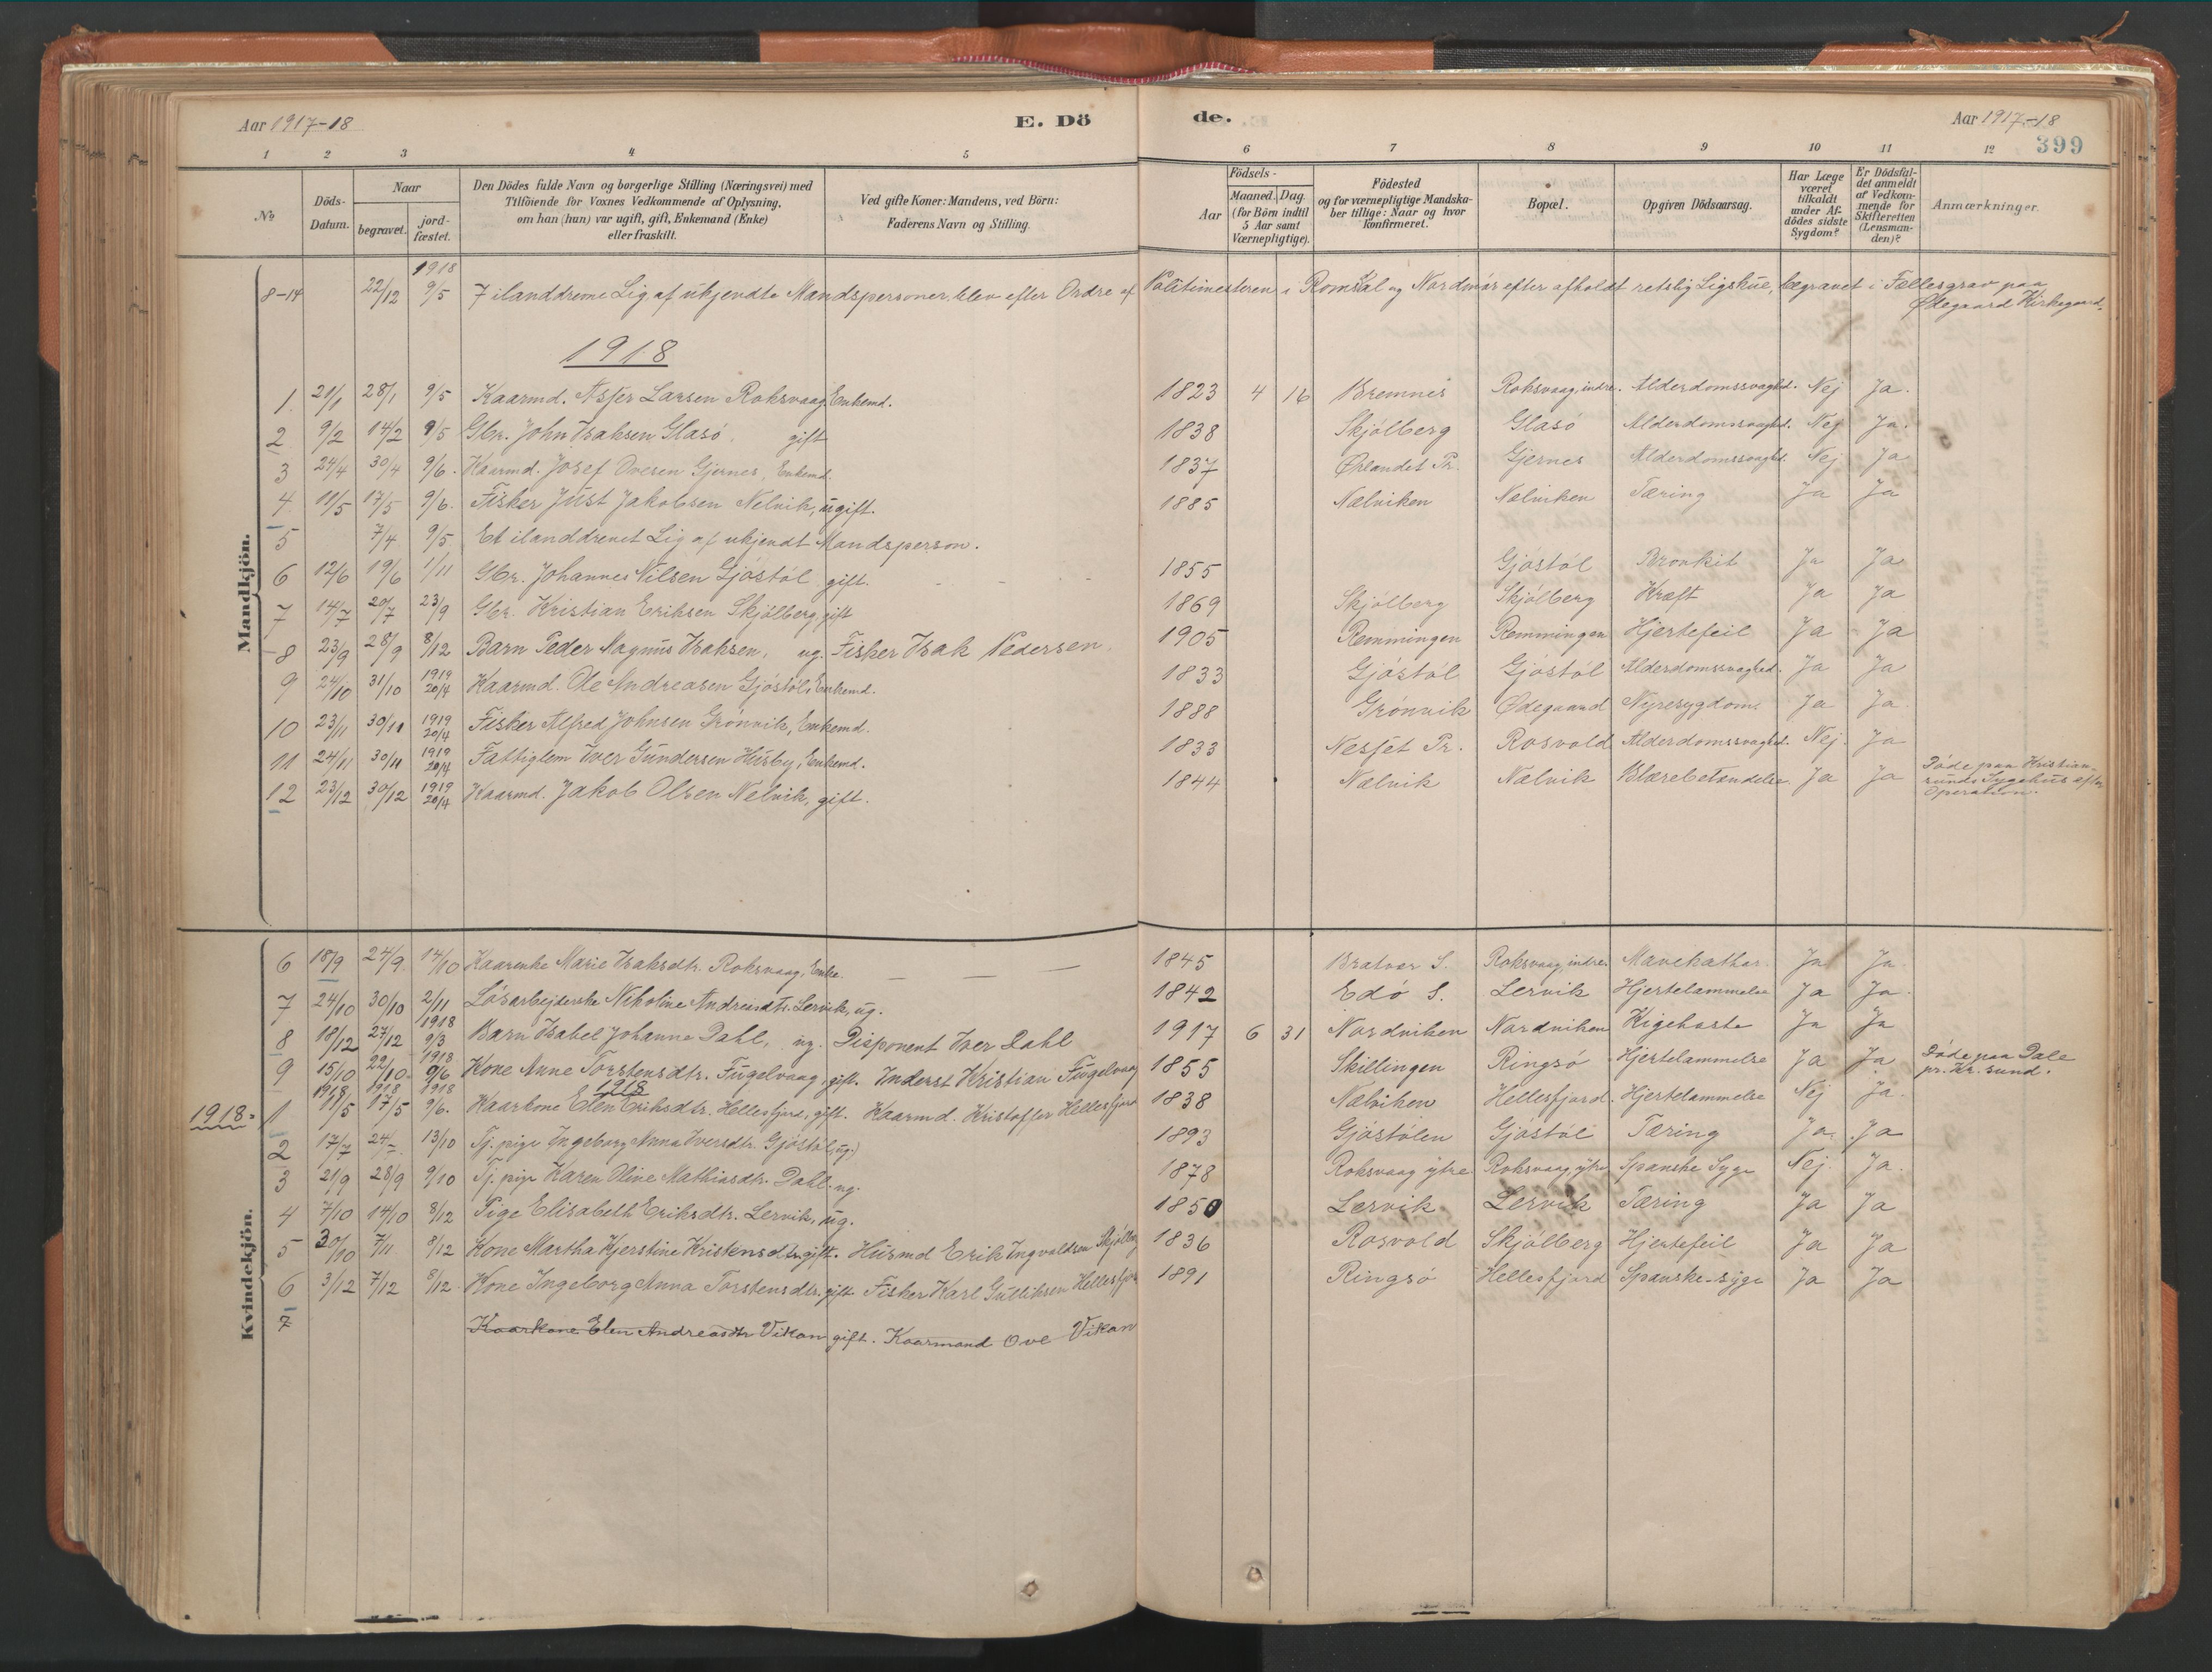 Aar 1917-18 E. Dö de. Aar 1917-18
399
1 2 3 4 5 6 7 8 9 10 11 12
No. Döds-Datum. Naar begravet. jord-fæstet. Den Dödes fulde Navn og borgerlige Stilling (Næringsvei) med Tilföiende for Voxnes Vedkommende af Oplysning, om han (hun) var ugift, gift, Enkemand (Enke) eller fraskilt. Ved gifte Koner: Mandens, ved Börn: Faderens Navn og Stilling. Aar Födsels- Maaned. Dag. (for Börn indtil 5 Aar samt Værnepligtige). Födested og for værnepligtige Mandskaber tillige: Naar og hvor konfirmeret. Bopæl. Opgiven Dödsaarsag. Har Læge været tilkaldt under Afdödes sidste Sygdom? Er Dödsfaldet anmeldt af Vedkommende for Skifteretten (Lensmanden)? Anmærkninger.
Mandkjön.
8-14 22/12 1918 9/5 7 ilanddrevne Lig af ukjendte Mandspersoner, blev efter Ordre af Politimesteren i Romsdal og Nordmør efter afholdt retslig Ligskue, begravet i Fællesgrav paa Ødegaard Kirkegaard.
1918
1. 21/1 28/1 9/5 Kaarmd. Asfer Larsen Roksvaag, Enkemd. 1823 4 16 Bremnes Roksvaag, indre. Alderdomssvaghed. Nej Ja.
2 9/2 14/2 9/5 Gbr. John Isaksen Glasö, gift 1838 Skjölberg Glasö Alderdomssvaghed. Nej Ja.
3 24/4 30/4 9/6. Kaarmd. Josef Ovesen Gjernes, Enkemd. 1837 Ørlandet Pr. Gjernes Alderdomssvaghed. Nej Ja
4 11/5 17/5 9/6. Fisker Just Jakobsen Nelvik, ugift. 1885 Nælviken Nælviken Tæring Ja Ja
5 7/4 9/5 Et ilanddrevet Lig af ukjendt Mandsperson.
6 12/6 19/6 1/11 Gbr. Johannes Nilsen Gjöstöl, gift. 1855 Gjöstöl Bronkit Ja Ja
7 14/7 20/7 23/9 Gbr. Kristian Eriksen Skjölberg, gift 1869 Skjölberg Skjölberg Kræft Ja Ja
8 23/9 28/9 8/12 Barn Peder Magnus Isaksen, ug. Fisker Isak Pedersen. 1905 Remmingen Remmingen Hjertefeil Ja Ja
9 24/10 31/10 1919 20/4 Kaarmd. Ole Andreasen Gjöstöl, Enkemd. 1833 Gjöstöl Gjöstöl Alderdomssvaghed. Ja Ja
10 23/11 30/11 1919 20/4 Fisker Alfred Johnsen Grönvik, Enkemd. 1888 Grönvik Ødegaard Nyresygdom. Ja Ja.
11 24/11 30/11 1919 20/4 Fattiglem Iver Gundersen Husby, Enkemd. 1833 Nesset Pr. Rosvold Alderdomssvaghed. Nej. Ja
12 23/12 30/12 1919 20/4 Kaarmd. Jakob Olsen Nelvik, gift. 1844 Nælvik Nælvik Blærebetændelse Ja Ja Döde paa Kristiansunds Sygehus efter Operation.
Kvindekjön.
6 18/9 24/9. 14/10 Kaarenke Marie Isaksdtr. Roksvaag, Enke. 1845 Bratvær S. Roksvaag, indre. Mavekathar. Ja Ja.
7 24/10 30/10 2/11 Lösarbejderske Nikoline Andreasdtr. Lervik, ug. 1842 Edö S. Lervik Hjertelammelse Ja Ja.
8 18/12 27/12 1918 9/3 Barn Isabel Johanna Dahl, ug. Disponent Iver Dahl 1917 6 31 Nordviken Nordviken Kigehoste Ja Ja
9 15/10 22/10 1918 9/6 Kone Anne Torstensdtr. Fugelvaag, gift. Inderst Kristian Fugelvaag 1855 Skillingen Ringsö Hjertelammelse Ja Ja. Döde paa Dale pr. Kr. sund.
1918
1918= 1 1918 11/5 1918 17/5 1918 9/6. Kaarkone Elen Eriksdtr. Hellesfjord, gift. Kaarmd. Kristoffer Hellesfjord 1838 Nælviken Hellesfjord. Hjertelammelse Nej Ja.
2 17/7 24/7 13/10 Tj. pige Ingeborg Anna Iversdtr. Gjöstöl, ug.) 1893 Gjöstölen Gjöstöl Tæring Ja Ja
3 21/9 28/9 9/10 Tj. pige Karen Oline Mathiasdtr. Dahl. ug. 1878 Roksvaag ytre Roksvaag, ytre Spanske Syge Nej. Ja.
4 7/10 14/10 8/12 Pige Elisabeth Eriksdtr. Lervik, ug. 1850 Lervik Lervik Tæring Ja Ja
5 30/10 7/11 8/12 Kone Martha Kjerstine Kristensdtr. gift. Husmd Erik Ingvaldsen Skjölberg 1836 Rosvold Skjölberg Hjertefeil Ja Ja
6 3/12 7/12 8/12. Kone Ingeborg Anna Torstensdtr. gift. Fisker Karl Gulliksen Hellesfjord 1891 Ringsö Hellesfjord Spanske-syge Ja Ja
7 Kaarkone Elen Andreasdtr Vikan gift. Kaarmand Ove Vikan